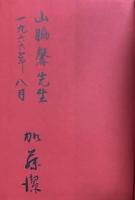 山脇馨先生
一九六六年八月
加藤